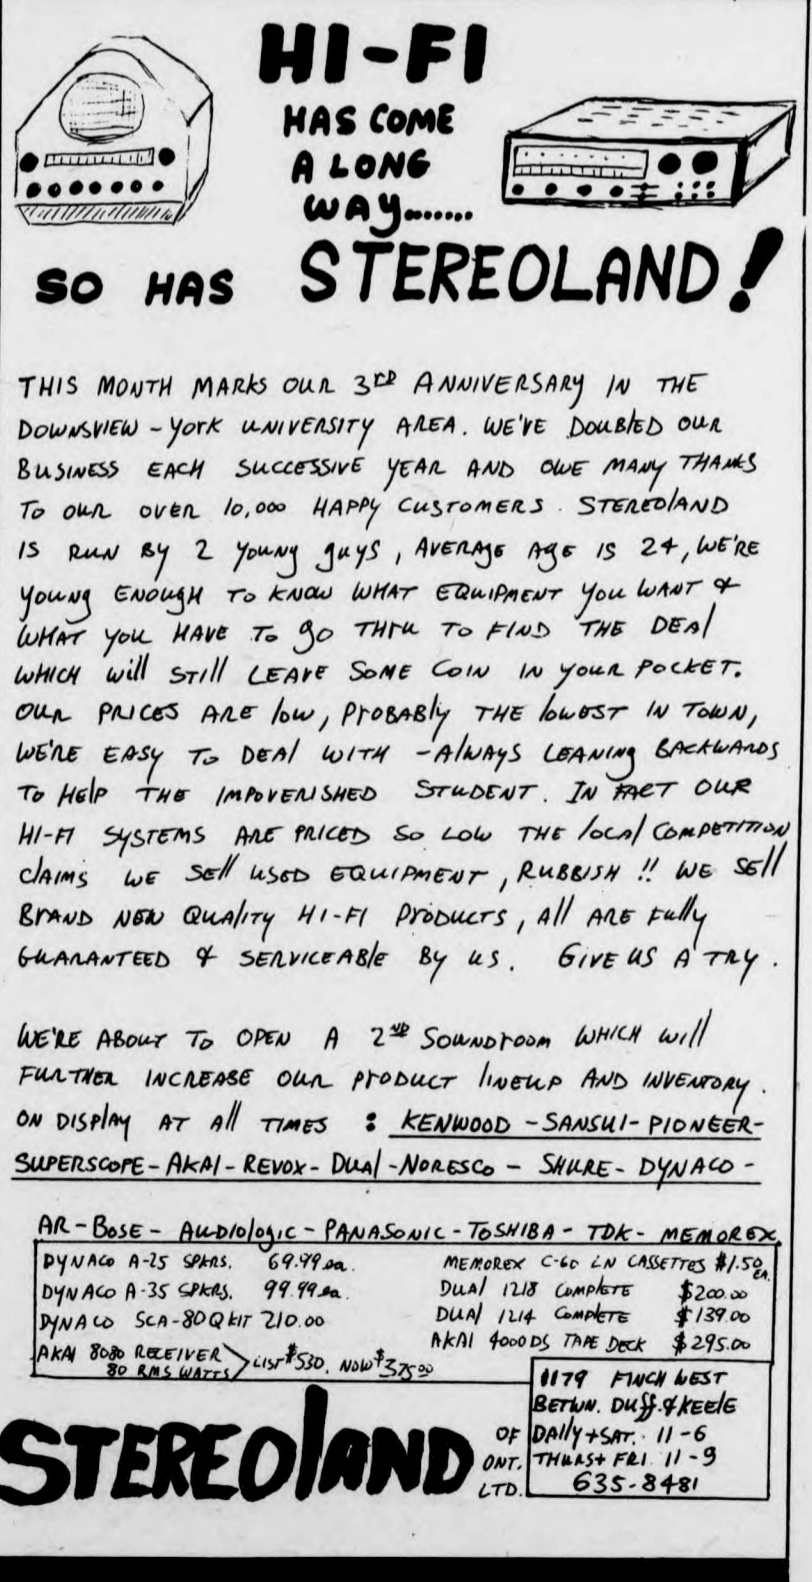 HI-FI
HAS COME
A LONG
WAY.......
SO HAS STEREOLAND!
THIS MONTH MARKS OUR 3RD ANNIVERSARY IN THE
DOWNSVIEW - YORK UNIVERSITY AREA. WE'VE DOUBLED OUR
BUSINESS EACH SUCCESSIVE YEAR AND OWE MANY THANKS
TO OUR OVER 10,000 HAPPY CUSTOMERS. STEREOLAND
IS RUN BY 2 YOUNG GUYS, AVERAGE AGE IS 24, WE'RE
YOUNG ENOUGH TO KNOW WHAT EQUIPMENT YOU WANT &
WHAT YOU HAVE TO GO THRU TO FIND THE DEAL
WHICH WILL STILL LEAVE SOME COIN IN YOUR POCKET.
OUR PRICES ARE LOW, PROBABLY THE LOWEST IN TOWN,
WE'RE EASY TO DEAL WITH - ALWAYS LEANING BACKWARDS
TO HELP THE IMPOVERISHED STUDENT. IN FACT OUR
HI-FI SYSTEMS ARE PRICED SO LOW THE LOCAL COMPETITION
CLAIMS WE SELL USED EQUIPMENT, RUBBISH!! WE SELL
BRAND NEW QUALITY HI-FI PRODUCTS, ALL ARE FULLY
GUARANTEED & SERVICEABLE BY US. GIVE US A TRY.
WE'RE ABOUT TO OPEN A 2ND SOUNDROOM WHICH WILL
FURTHER INCREASE OUR PRODUCT LINEUP AND INVENTORY.
ON DISPLAY AT ALL TIMES : KENWOOD - SANSUI - PIONEER -
SUPERSCOPE - AKAI - REVOX - DUAL - NORESCO - SHURE - DYNACO -
AR - BOSE - AUDIOLOGIC - PANASONIC - TOSHIBA - TDK - MEMOREX
DYNACO A-25 SPKRS. 69.99 ea.
DYNACO A-35 SPKRS. 99.99 ea.
DYNACO SCA-80Q KIT 210.00
AKAI 8080 RECEIVER
80 RMS WATTS LIST $530. NOW $375.00
MEMOREX C-60 LN CASSETTES $1.50 EA.
DUAL 1218 COMPLETE $200.00
DUAL 1214 COMPLETE $139.00
AKAI 4000DS TAPE DECK $295.00
STEREOLAND OF ONT. LTD.
1179 FINCH WEST
BETWN. DUFF. & KEELE
DAILY + SAT. 11-6
THURS + FRI 11-9
635-8481